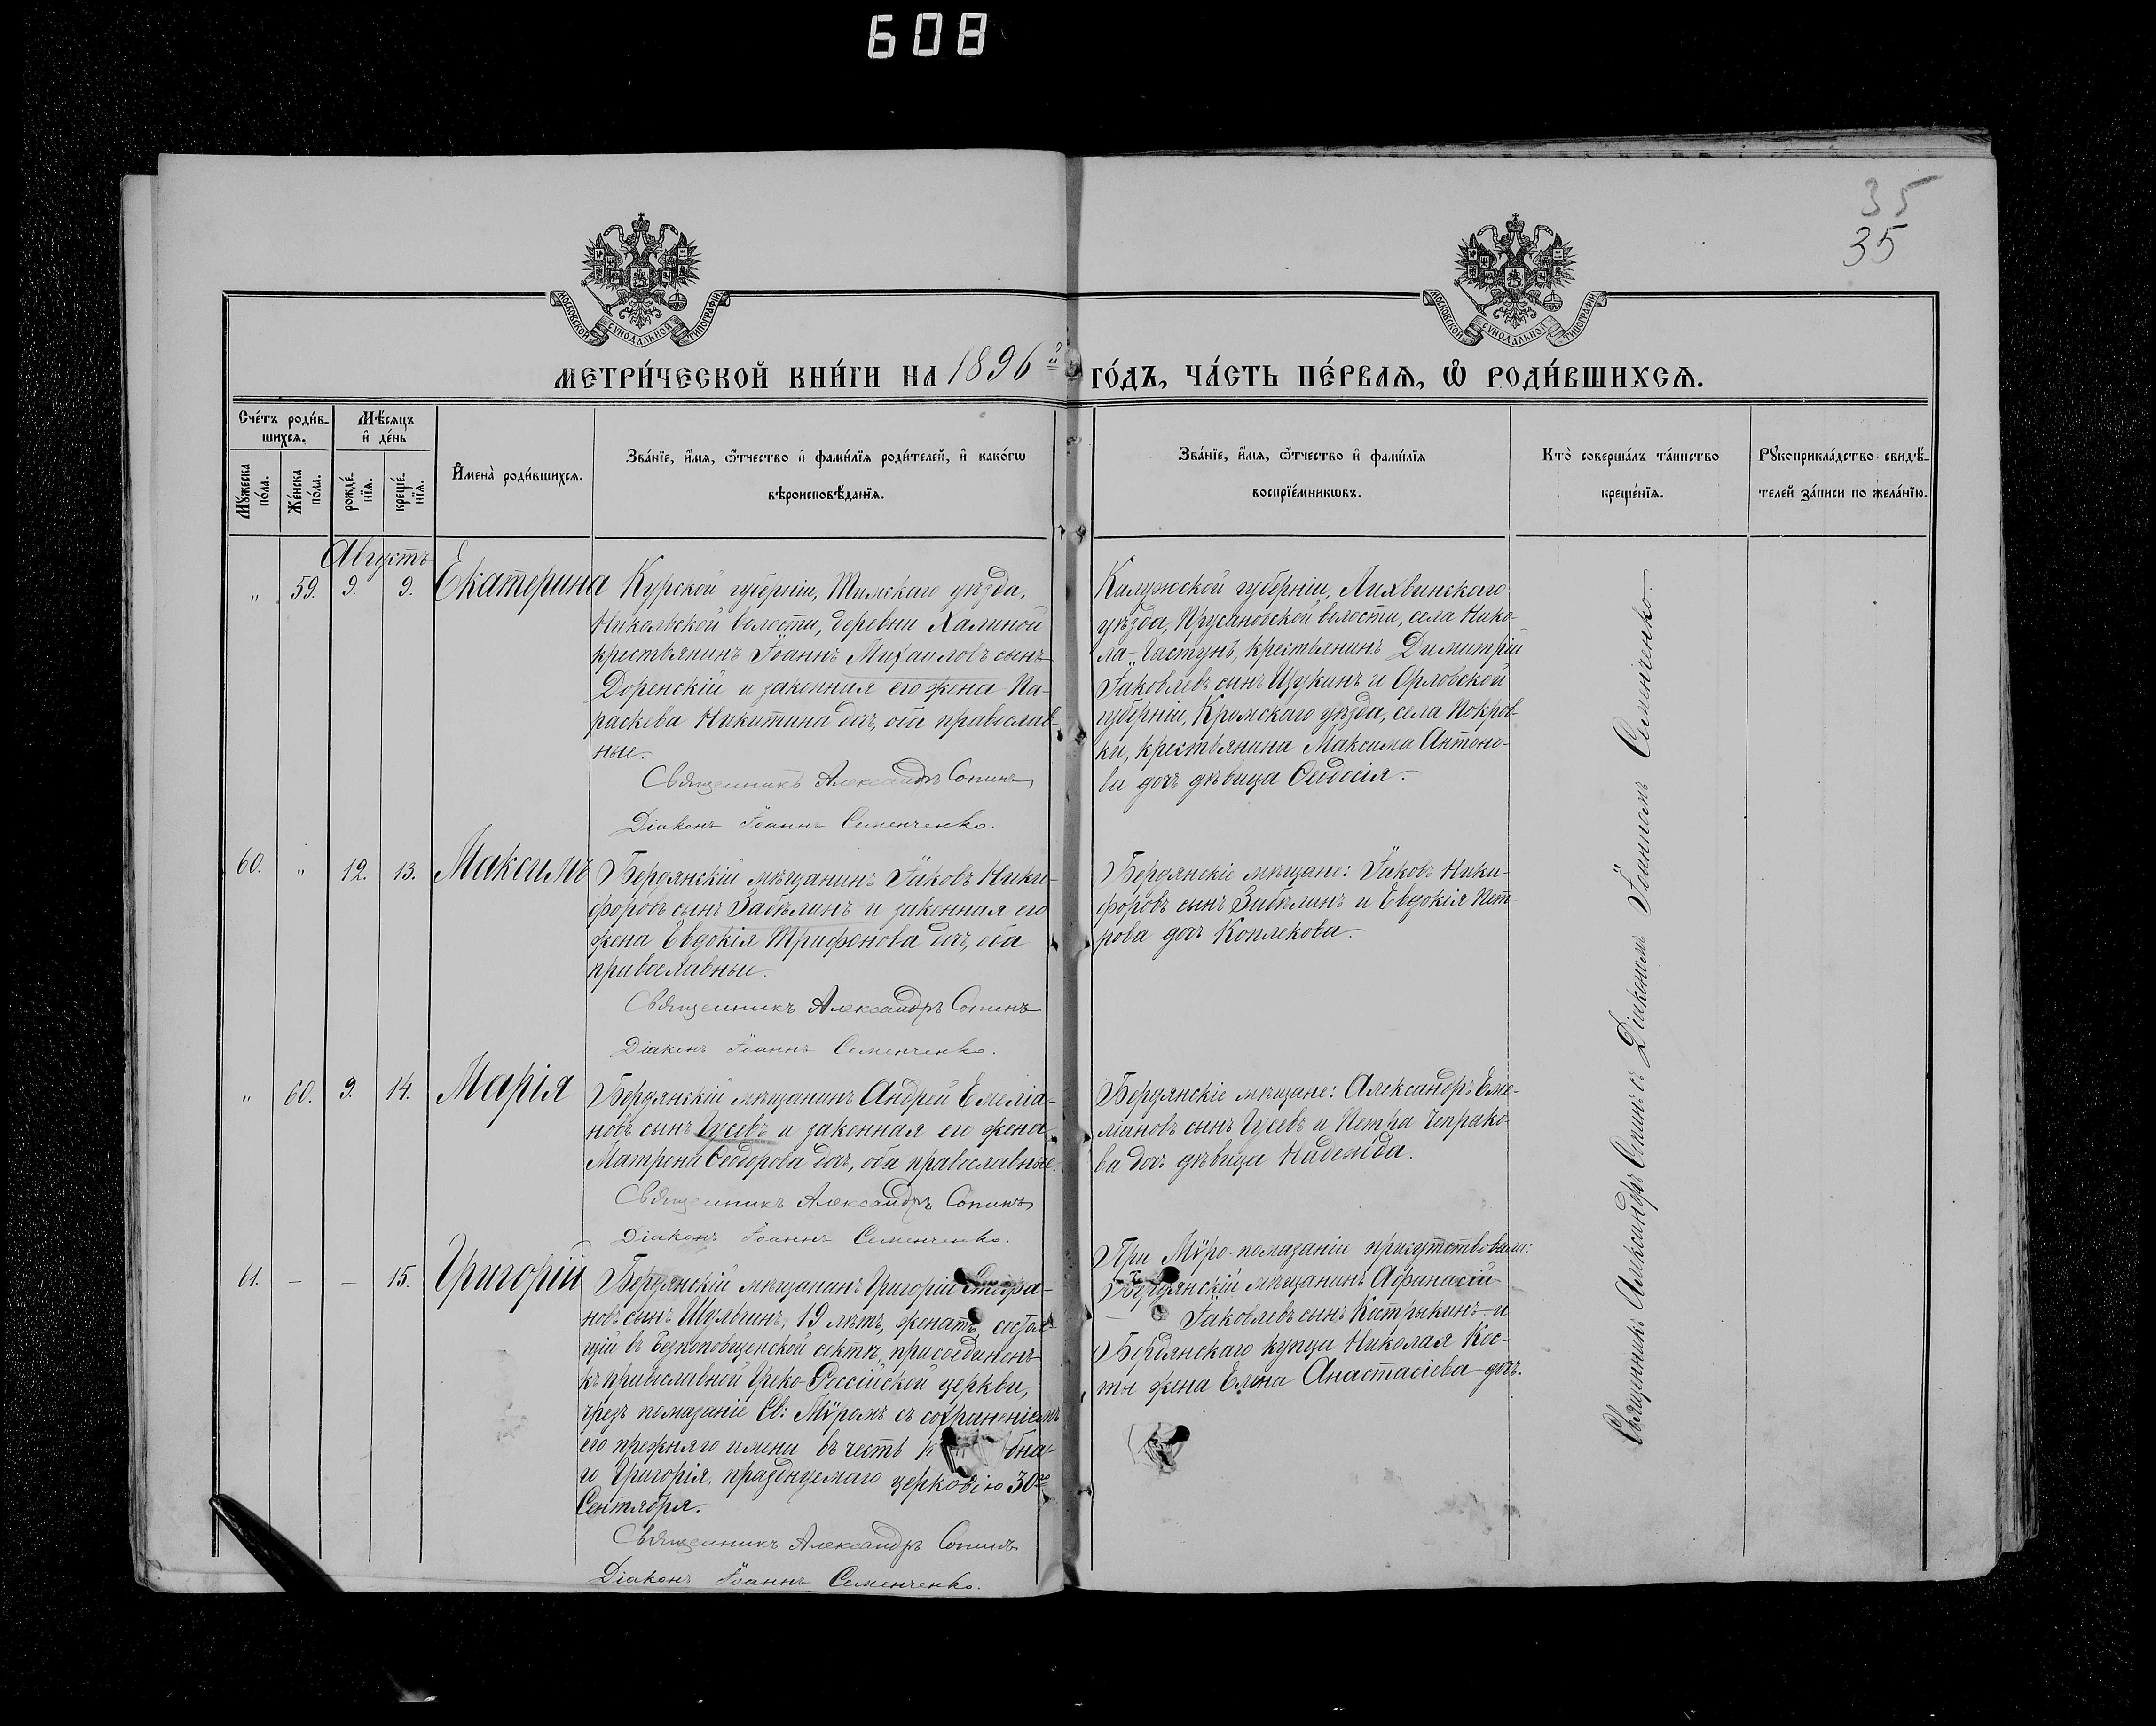 608
35
35
МОСКОВСКОЙ СУНОДАЛЬНОЙ ТИПОГРАФІИ
МОСКОВСКОЙ СУНОДАЛЬНОЙ ТИПОГРАФІИ
МЕТРИ́ЧЕСКОЙ КНИ́ГИ НА 1896й ГО́ДЪ, ЧА́СТЬ ПЕ́РВАѦ, Ѡ҆ РОДИ́ВШИХСѦ.
Сче́тъ роди́в-
шихсѧ.
Мѣ́сѧцъ
и҆ де́нь
Мꙋ́жеска
по́ла.
Же́нска
по́ла.
рожде́-
нїѧ.
креще́-
нїѧ.
И҆мена̀ роди́вшихсѧ.
Зва́нїе, и҆́мѧ, ѻ҆́тчество и҆ фами́лїѧ роди́телей, и҆ како́гѡ
вѣроисповѣ́данїѧ.
Зва́нїе, и҆́мѧ, ѻ҆́тчество и҆ фами́лїѧ
воспрїе́мникѡвъ.
Кто̀ соверша́лъ та́инство
креще́нїѧ.
Рꙋкоприкла́дство свидѣ́-
телей за́писи по жела́нїю.
Августъ
„ 59. 9. 9. Екатерина
Курской губерніи, Тимскаго уѣзда,
Никольской волости, деревни Халиной
крестьянинъ Іоаннъ Михаиловъ сынъ
Доренскій и законная его жена Па-
раскева Никитина доч., оба православ-
ные.
Священникъ Александръ Сопинъ
Діаконъ Іоаннъ Семенченко.
Калужской губерніи, Лихвинскаго
уѣзда, Прусановской волости, села Нико-
ла-Гастунь, крестьянинъ Димитрій
Іаковлевъ сынъ Щукинъ и Орловской
губерніи, Кромскаго уѣзда, села Покров-
ки, крестьянина Максима Антоно-
ва доч. дѣвица Ѳеодосія.
60. „ 12. 13. Максимъ
Бердянскій мѣщанинъ Іаковъ Ники-
форовъ сынъ Забѣлинъ и законная его
жена Евдокія Трифонова доч., оба
православные.
Священникъ Александръ Сопинъ
Діаконъ Іоаннъ Семенченко.
Бердянскіе мѣщане: Іаковъ Ники-
форовъ сынъ Забѣлинъ и Евдокія Пет-
рова доч. Коплекова.
„ 60. 9. 14. Марія
Бердянскій мѣщанинъ Андрей Емеліа-
новъ сынъ Гусевъ и законная его жена
Матрона Ѳеодорова доч., оба православные.
Священникъ Александръ Сопинъ
Діаконъ Іоаннъ Семенченко.
Бердянскіе мѣщане: Александръ Еме-
ліановъ сынъ Гусевъ и Петра Чепрако-
ва доч. дѣвица Надежда.
61. — — 15. Григорій
Бердянскій мѣщанинъ Григорій Стефа-
новъ сынъ Шульгинъ, 19 лѣтъ, женатъ, состоя-
щій въ безпоповщенской сектѣ, присоединенъ
къ православной Греко-Россійской церкви,
чрезъ помазаніе Св: Мѵромъ съ сохраненіемъ
его прежняго имени въ честь бна-
го Григорія, празднуемаго церковію 30го
Сентября.
Священникъ Александръ Сопинъ
Діаконъ Іоаннъ Семенченко.
При Мѵро-помазаніе присутствовали:
Бердянскій мѣщанинъ Афанасій
Іаковлевъ сынъ Кострыкинъ и
Бердянскаго купца Николая Кос-
ты жена Елена Анастасіева доч.
Священникъ Александръ Сопинъ съ Діакономъ Іоанномъ Семенченко.